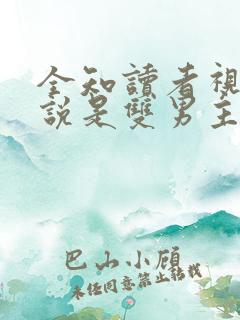 全知讀者視
說是雙男主
巴山小顧
未经同意禁止转载